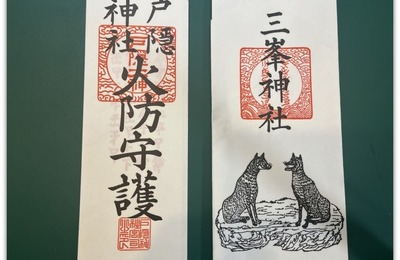 戸隠
神社
火防守護
三峯神社